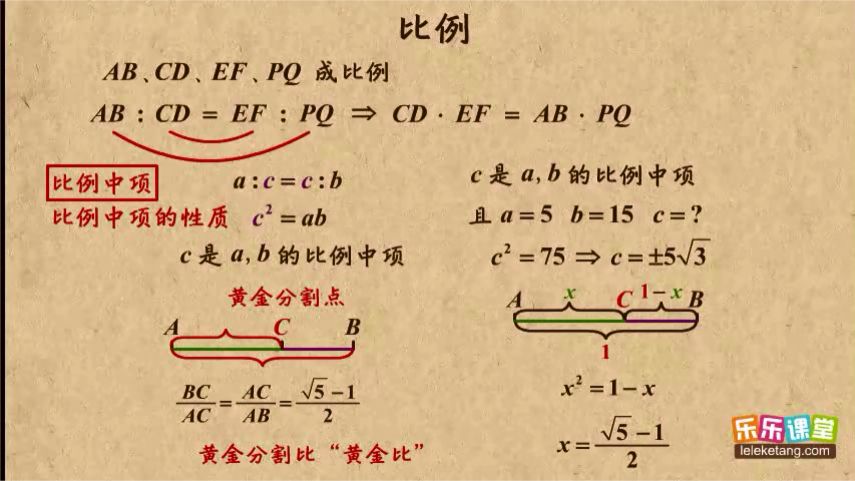 比例
AB、CD、EF、PQ 成比例
AB : CD = EF : PQ ⇒ CD · EF = AB · PQ
比例中项 a : c = c : b
比例中项的性质 c² = ab
c 是 a, b 的比例中项
c 是 a, b 的比例中项
且 a = 5 b = 15 c = ?
c² = 75 ⇒ c = ±5√3
黄金分割点
A C B
BC/AC = AC/AB = (√5 − 1)/2
黄金分割比“黄金比”
A x C 1 − x B
1
x² = 1 − x
x = (√5 − 1)/2
乐乐课堂
leleketang.com